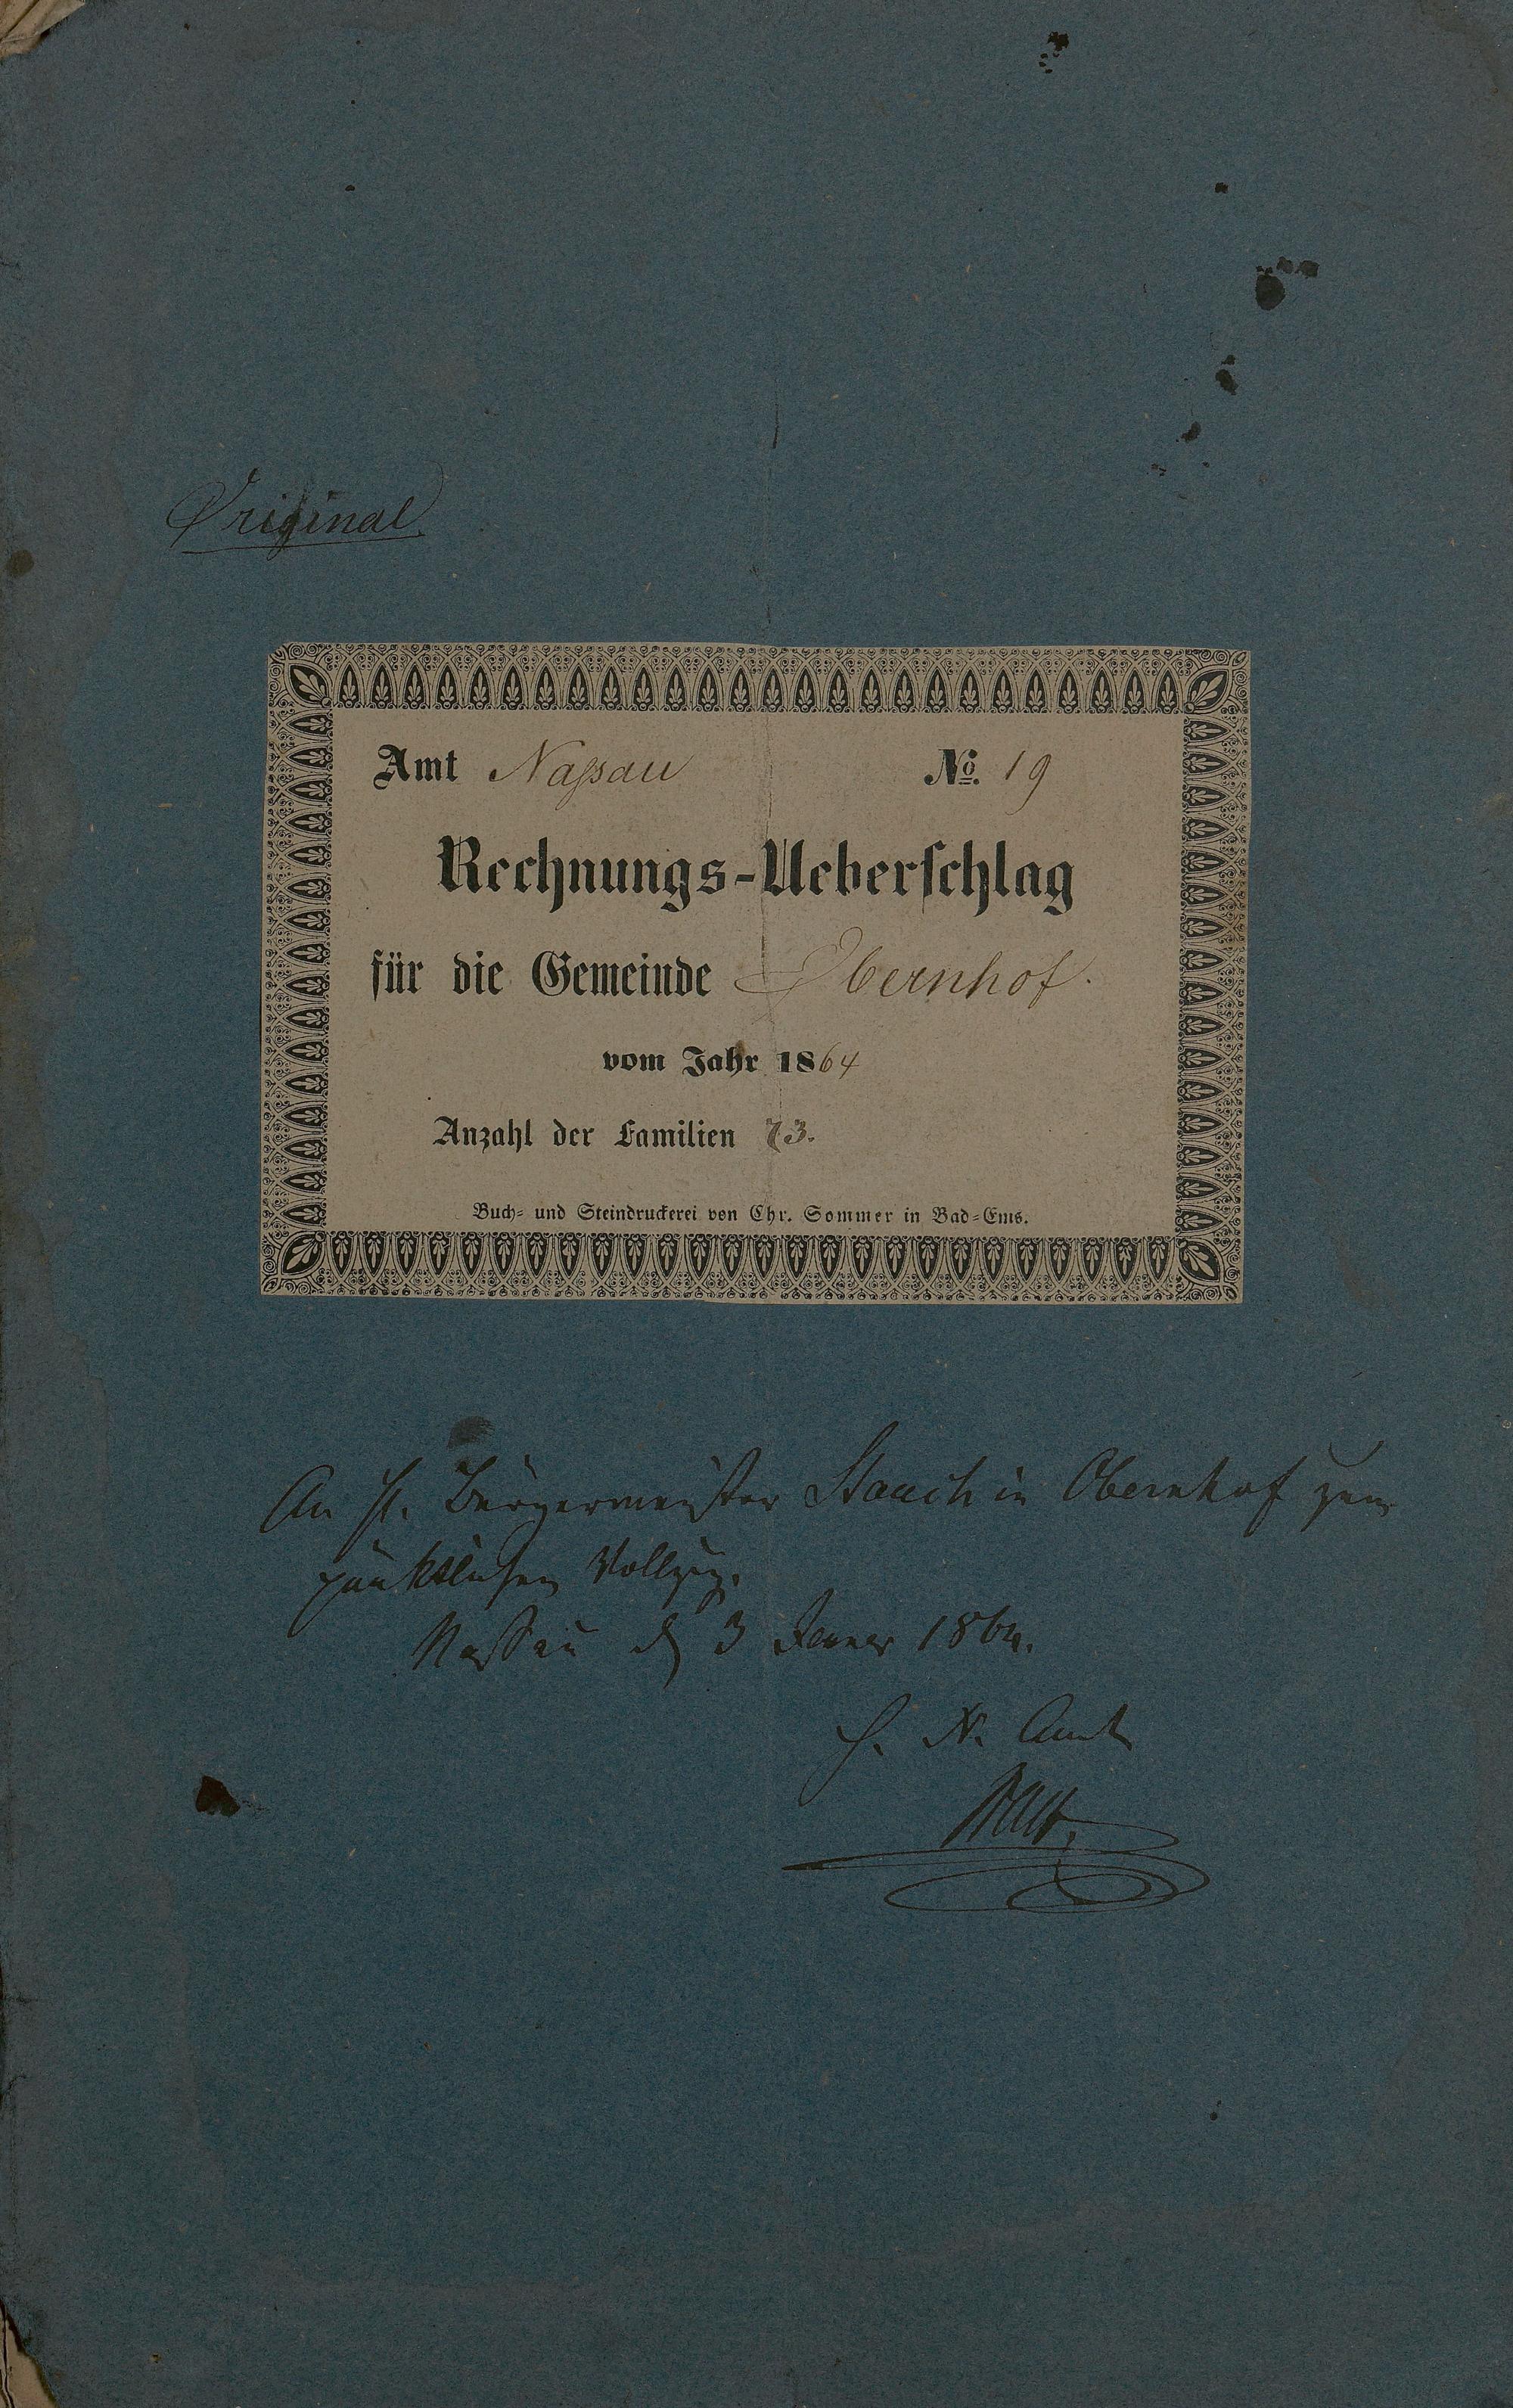 Original
Amt Nassau No. 19
Rechnungs-Ueberschlag
für die Gemeinde Obernhof.
vom Jahr 1864
Anzahl der Familien 73.
Buch- und Steindruckerei von Chr. Sommer in Bad-Ems.
An H. Bürgermeister Stauch in Obernhof zum
pünktlichen Vollzug.
Nassau d 3 Jenner 1864.
H. N. Amt